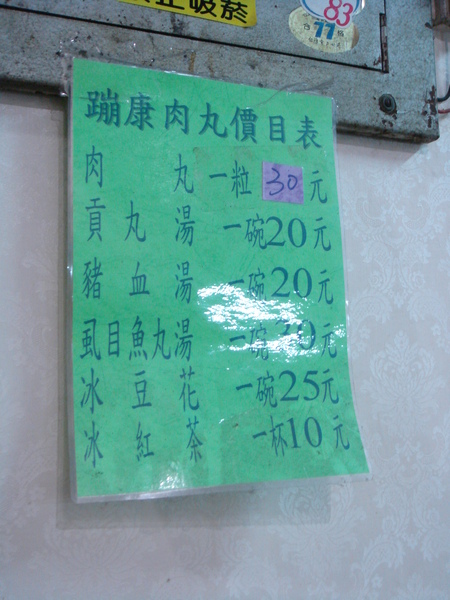 止吸菸
83
77
蹦康肉丸價目表
肉丸一粒30元
貢丸湯一碗20元
豬血湯一碗20元
虱目魚丸湯一碗30元
冰豆花一碗25元
冰紅茶一杯10元